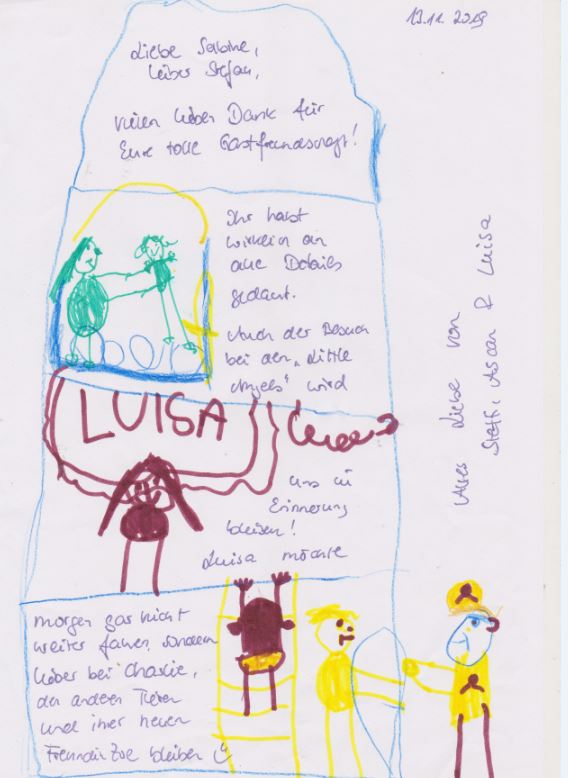 13.11.2019
Liebe Sabine,
lieber Stefan,
vielen lieben Dank für
Eure tolle Gastfreundschaft!
Ihr habt
wirklich an
alle Details
gedacht.
Auch der Besuch
bei den „Little
Angels“ wird
LUISA
uns in
Erinnerung
bleiben!
Luisa möchte
morgen gar nicht
weiter fahren, sondern
lieber bei Charlie,
den anderen Tieren
und ihrer neuen
Freundin Zoe bleiben
Alles Liebe von
Steffi, & Luisa